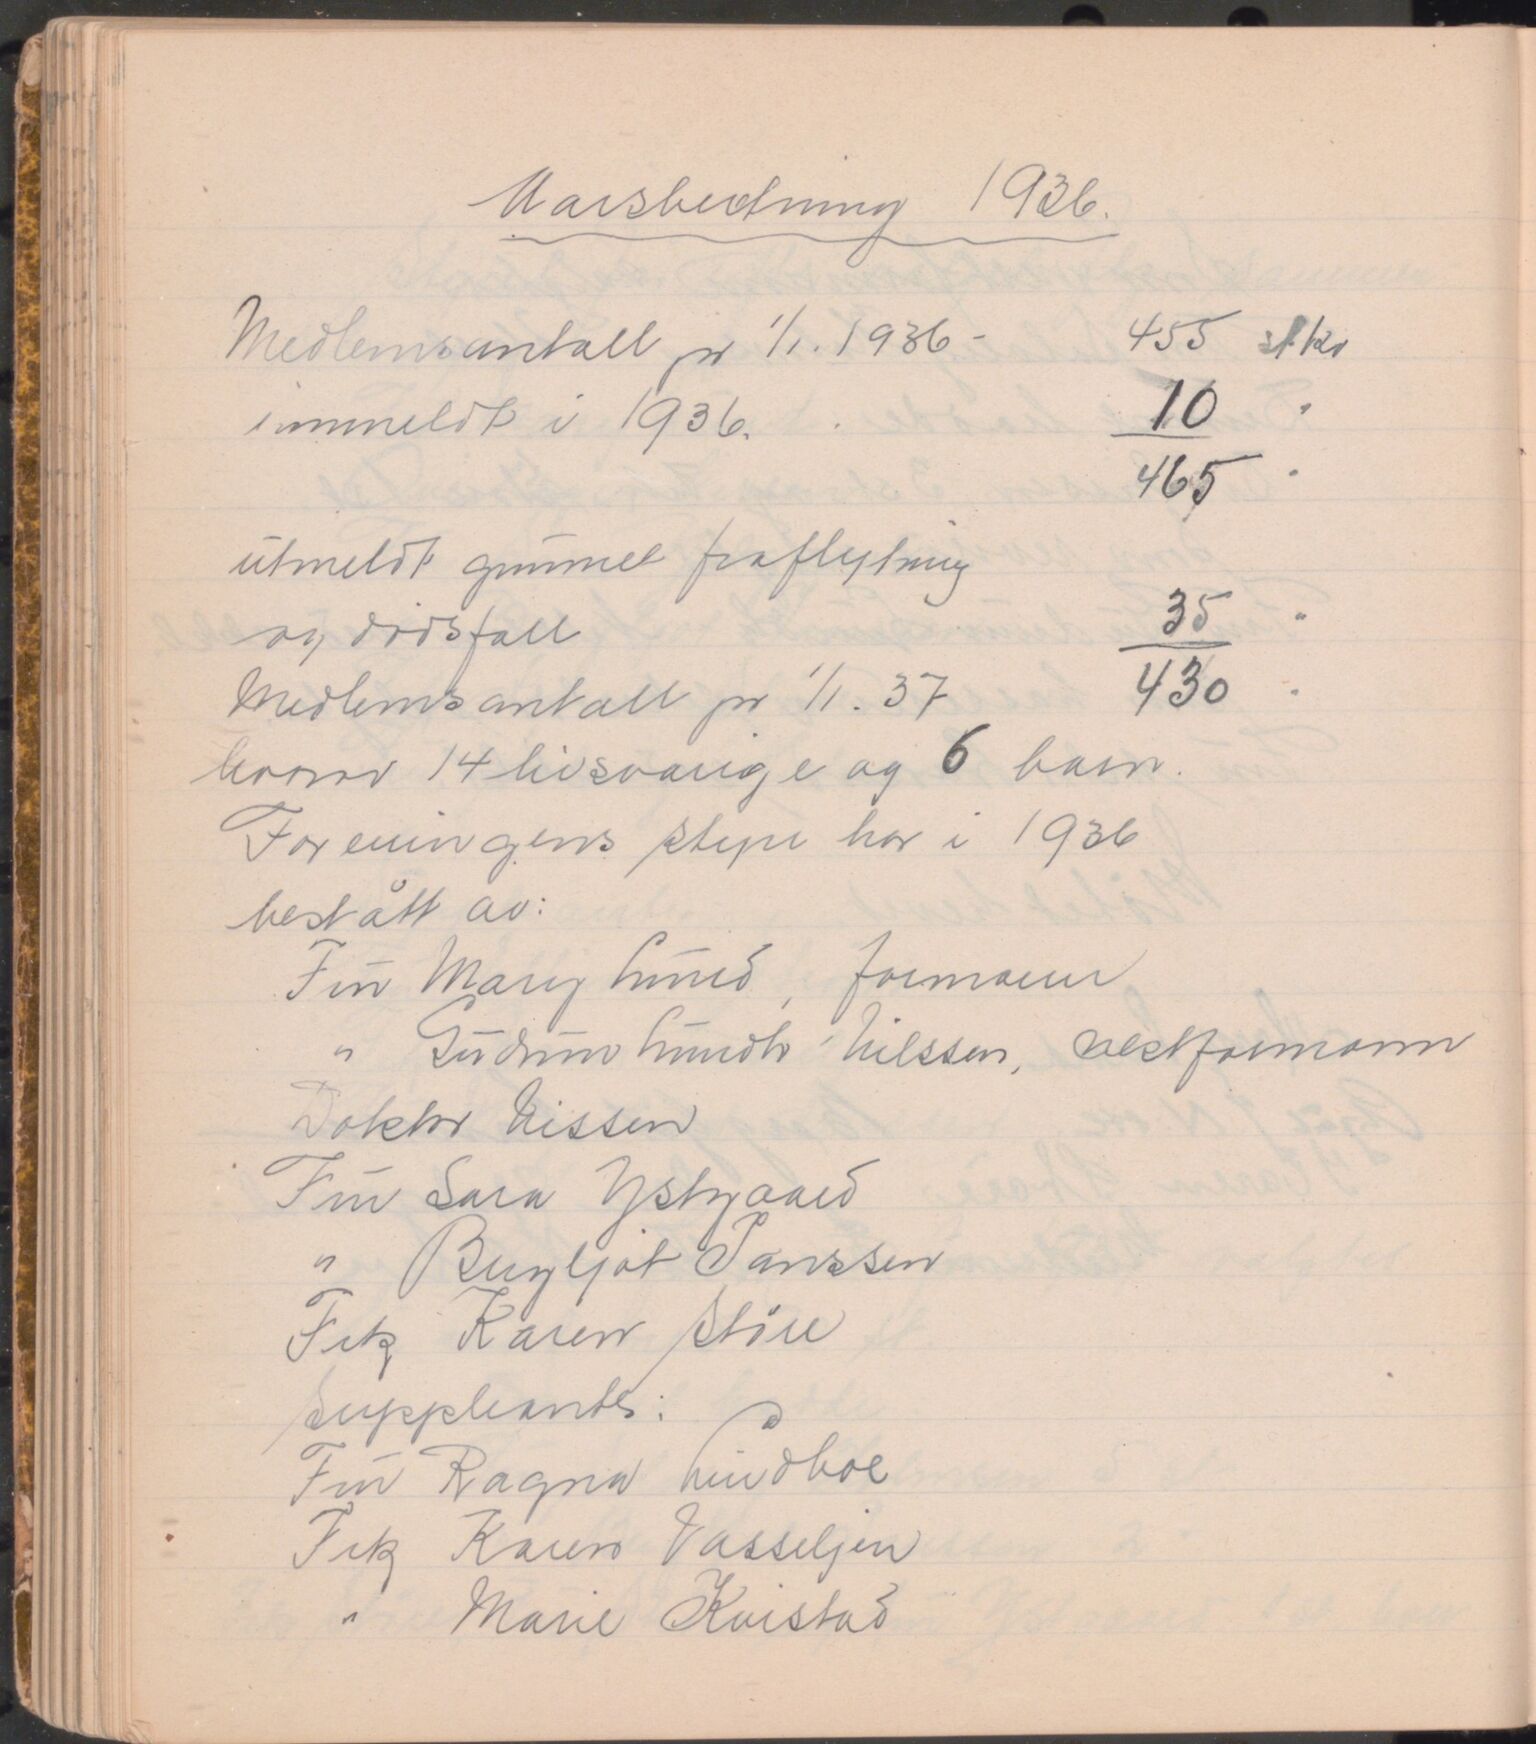 Aarsberetning 1936.
Medlemsantall pr 1/1. 1936 - 455 stkr
innmeldt i 1936. 10 "
465 "
utmeldt grunnet fraflytning
og dødsfall 35 "
Medlemsantall pr 1/1. 37 430 "
hvorav 14 livsvarige og 6 barn.
Foreningens styre har i 1936
bestått av:
Fru Mary Lund, formann
" Gudrun Lundh Nilssen, viseformann
Doktor Nissen
Fru Sara Ystgaard
" Bergljot Janssen
Frk Karen Støre
Suppleanter:
Fru Ragna Lindboe
Frk Karen Vasseljen
" Marie Kvistad